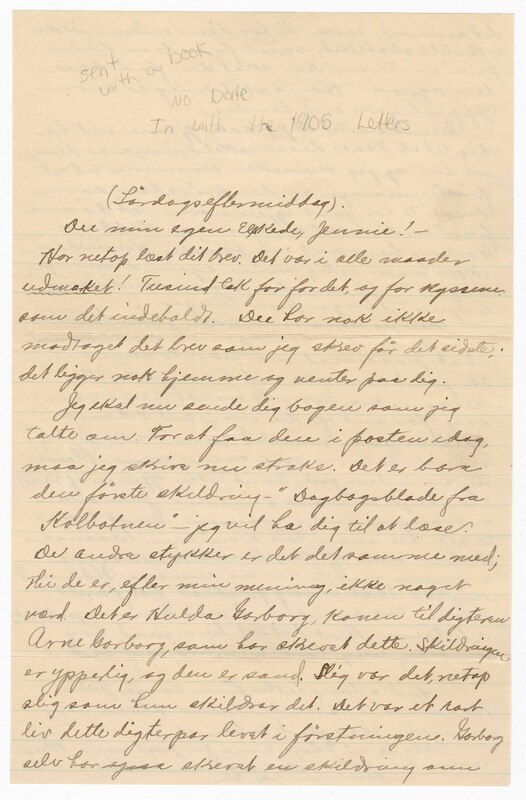 sent
with a book
No Date
In with the 1905 Letters
(Lördagseftermiddag).
Du min egen Elskede, Jennie! —
Har netop læst dit brev. Det var i alle maader
udmærket! Tusind tak for for det, og for kyssene
som det indeholdt. Du har nok ikke
modtaget det brev som jeg skrev för det sidste.
det ligger nok hjemme og venter paa dig.
Jeg skal nu sende dig bogen som jeg
talte om. For at faa den i posten idag,
maa jeg skrive nu straks. Det er bare
den förste skildring — "Dagbogsblade fra
Kolbotnen" — jeg vil ha dig til at læse.
De andre stykker er det det samme med;
thi de er, efter min mening, ikke noget
værd. Det er Hulda Garborg, konen til digteren
Arne Garborg, som har skrevet dette. Skildringen
er ypperlig, og den er sand. Slig var det, netop
slig som hun skildrer det. Det var et rart
liv dette digterpar levet i förstningen. Garborg
selv har skrevet en skildring om